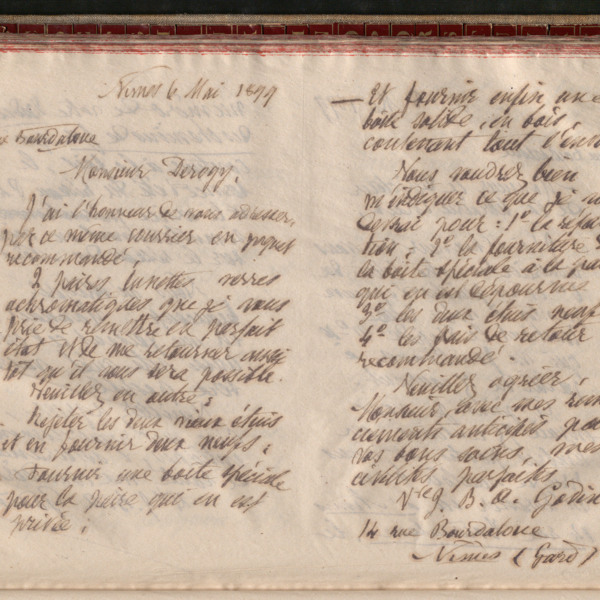 Nimes 6 Mai 1899
Bourdaloue
Monsieur Derogy.
J'ai l'honneur de vous adresser,
par ce même courrier en paquet
recommandé
2 paires lunettes verres
achromatiques que je vous
prie de remettre en parfait
état et de me retourner aussi
tôt qu'il vous sera possible.
Veuillez en outre :
Rejeter les deux vieux étuis
et en fournir deux neufs ;
Fournir une boîte spéciale
pour la paire qui en est
privée ;
— Et fournir enfin une
boîte solide, en bois,
contenant tout l'en
Vous voudrez bien
m'indiquer ce que je v
devrai pour : 1º la répa
tion ; 2º la fourniture d
la boîte spéciale à la pai
qui en est dépourvue
3º les deux étuis neufs
4º les frais de retour
recommandé.
Veuillez agréer,
Monsieur, avec mes remer
ciements anticipés pour
vos bons soins, mes
civilités parfaites
Vte G. B. de
14 rue Bourdaloue
Nimes (Gard)